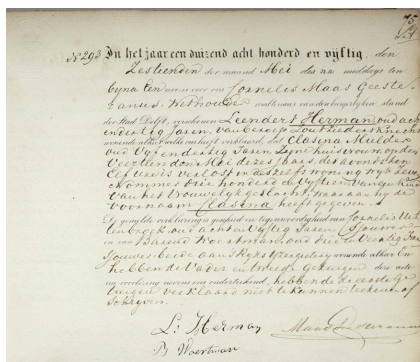 N° 293 In het jaar een duizend acht honderd en vijftig, den
Zestienden der maand Mei des na middags ten
byna tien ure voor ons Cornelis Maas Geeste-
ranus Wethouder ambtenaar van den burgerlyken stand
der Stad Delft, verschenen Leendert Herman oud acht
endertig Jaren, van beroep Zoutziedersknecht
wonende alhier welke ons heeft verklaard, dat Clasina Mulder
oud vyf endertig Jaren Zyne huisvrouw op den
Veertienden Mei dezes jaars, des avonds ten
Elf ure is verlost in deszelfs woning wyk
nommer drie honderd en Vyftien van een Kind
van het vrouwelyk geslacht, waaraan hy de
voornaam Clasina heeft gegeven.
De gezegde verklaring is geschied in tegenwoordigheid van Cornelis
oud acht en Vyftig Jaren Sjouwer
en van Barend Woertman oud drie en Veertig Jaren
Sjouwer beide aan Ryks wonende alhier En
hebben de Vader en tweede Getuigen deze acte
na voorlezing nevens ons onderteekend, hebbende de eerste Ge-
tuigen verklaard niet te kunnen teekenen of
Schryven.
L: Herman
B Woertman